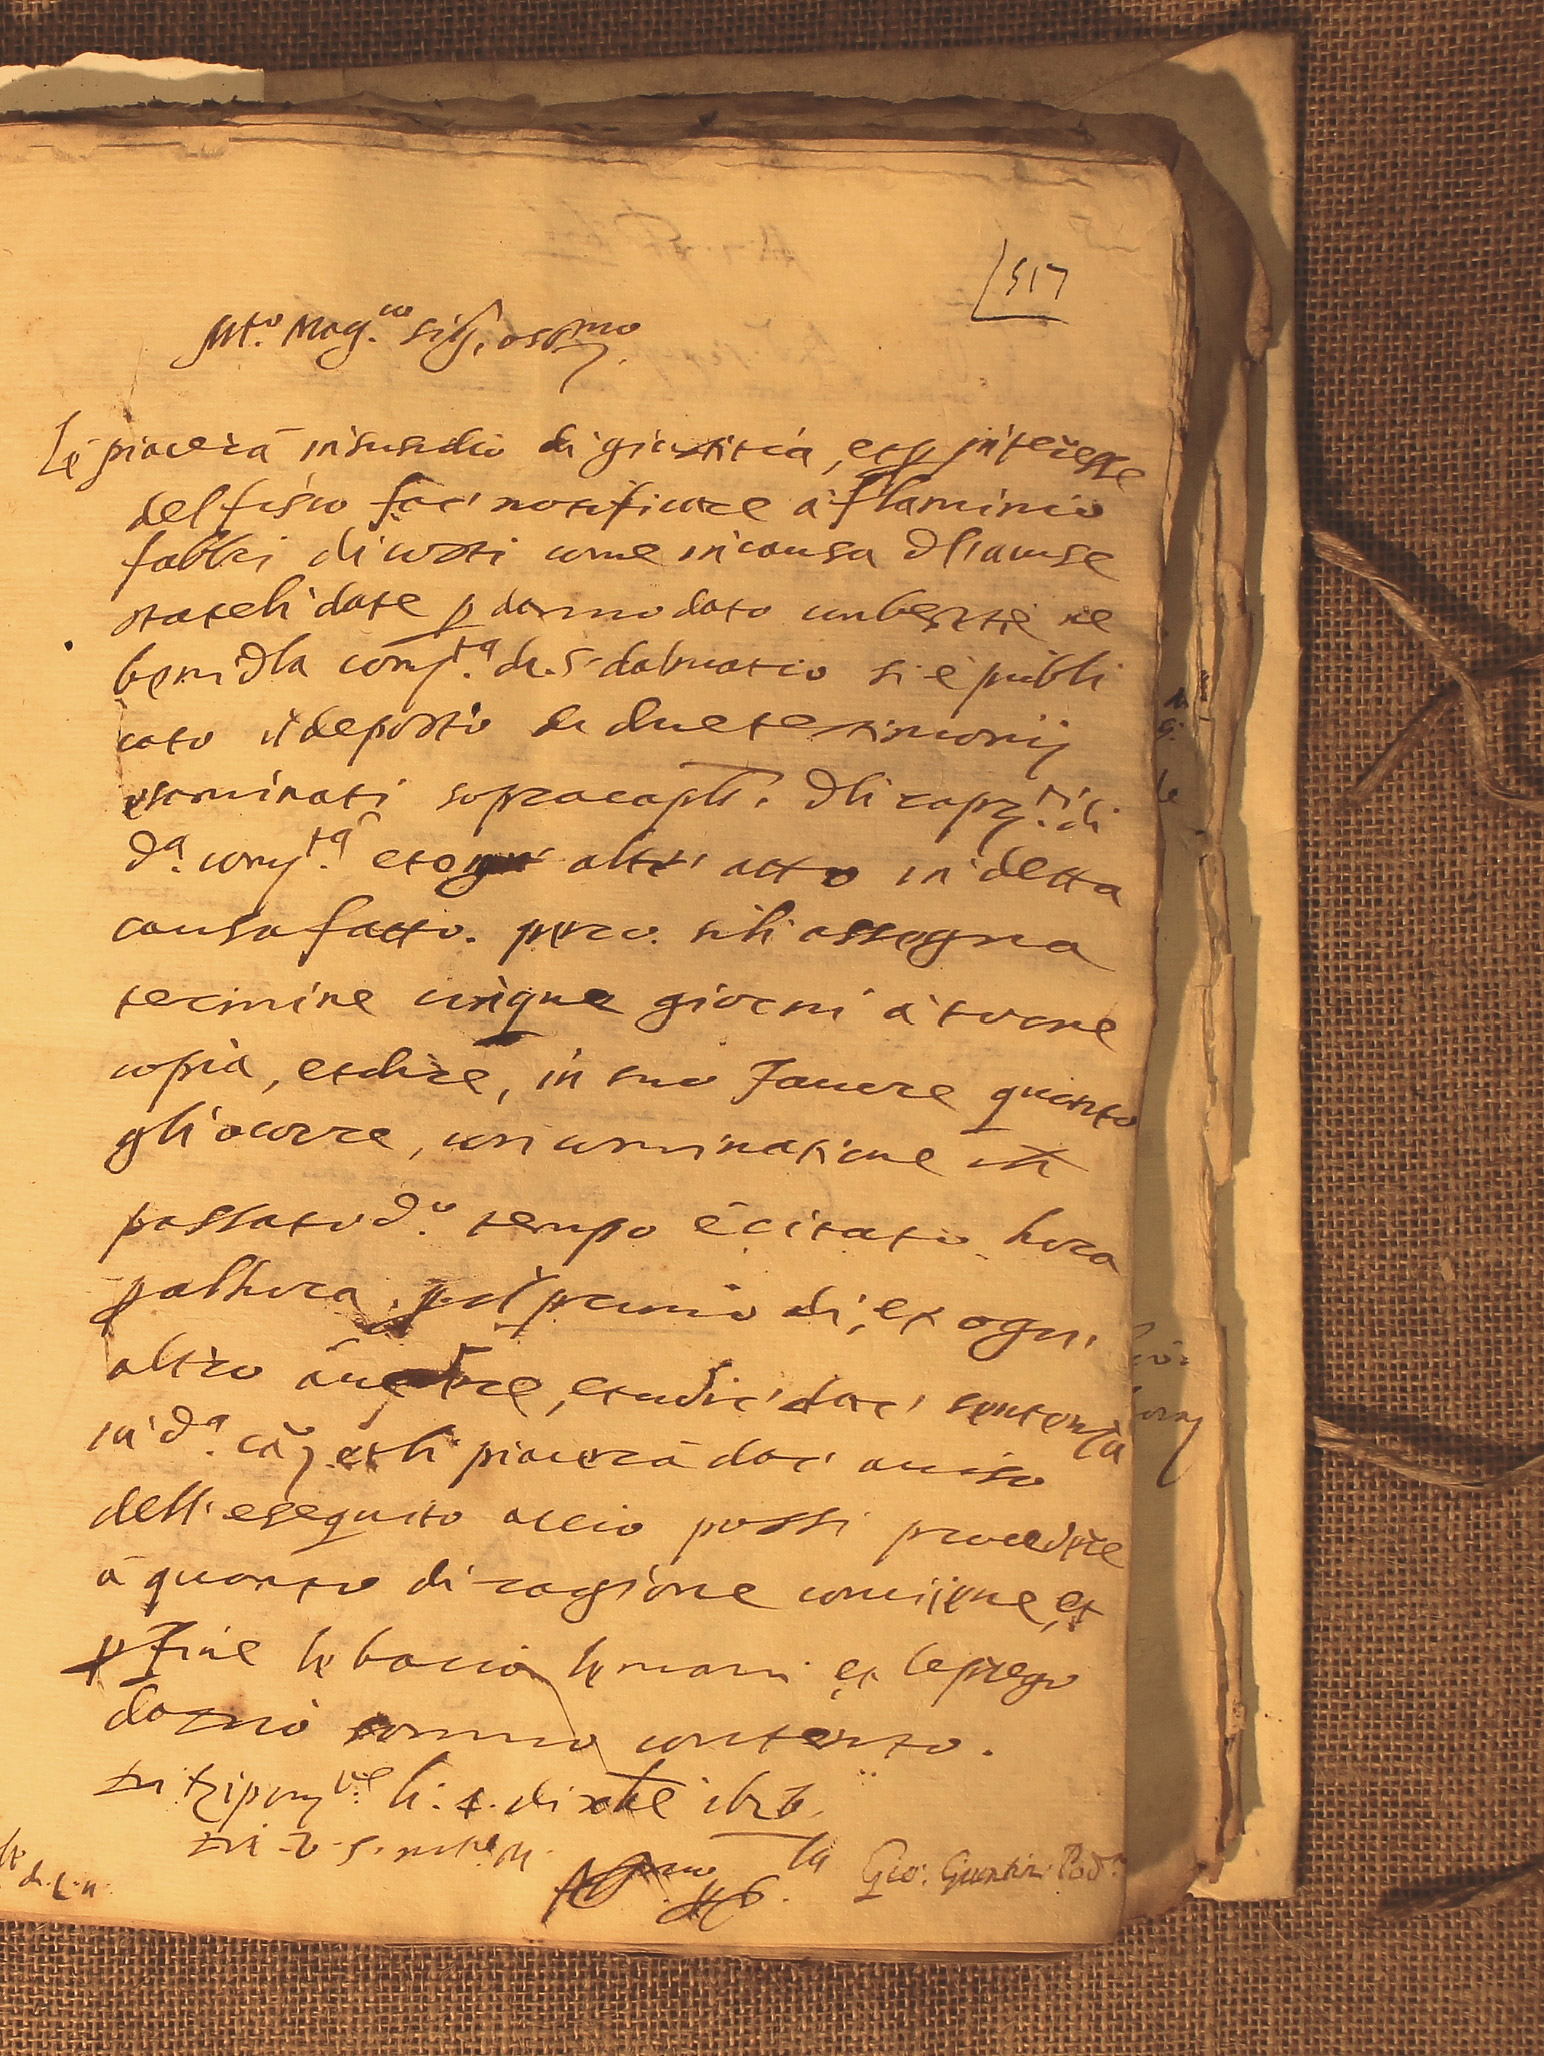 517
Mto. Mag.co sig.r oss.mo
Le piacerà in susidio di giustitia, et p interesse
del fisco far notificare à flaminio
fabbri di costi come in causa dl'acuse
stateli date p danno dato con bestie ne
beni dla com.ta di S. dalmatio si è publi
cato il deposto di due testimonij
esaminati sopra capli. dli rapp.ti di
da. com.ta et ogni altr' atto in detta
causa fatto. perco. seli assegna
termine cinque giorni à torne
copia, et dire, in suo favore quanto
gli ocorre, con cominatione ch
passato do. tempo è citato hora
p alhora p il primo di, et ogni
altro à udir dar' sentenza
in da. cã et li piacerà dar' aviso
dell' eseguito acciò possi procedere
à quanto di ragione conviene, et
p fine le bacio le mani et le prego
da N. S. ogni contento.
li: 4. di xbre
Gio: Giuntini Pod.a